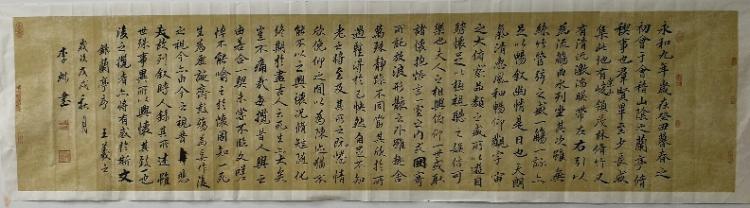 永和九年歲在癸丑暮春之
初會于會稽山陰之蘭亭脩
禊事也群賢畢至少長咸
集此地有崇山峻領茂林脩竹又
有清流激湍暎帶左右引以
為流觴曲水列坐其次雖無
絲竹管弦之盛一觴一詠亦
足以暢敘幽情是日也天朗
氣清惠風和暢仰觀宇宙
之大俯察品類之盛所以遊目
騁懷足以極視聽之娛信可
樂也夫人之相與俯仰一世或取
諸懷抱悟言一室之內或因寄
所託放浪形骸之外雖趣舍
萬殊靜躁不同當其欣於所
遇蹔得於己快然自足不知
老之將至及其所之既惓情
欣俛仰之間以為陳跡猶不
能不以之興懷況脩短隨化
終期於盡古人云死生亦大矣
豈不痛哉每攬昔人興感之
由若合一契未嘗不臨文嗟
悼不能喻之於懷固知一死
生為虛誕齊彭殤為妄作後
之視今亦由今之視昔悲
夫故列敘時人錄其所述雖
世殊事異所以興懷其致一也
後之攬者亦將有感於斯文
錄蘭亭序 王羲之
歲後戊戌秋月
李 書